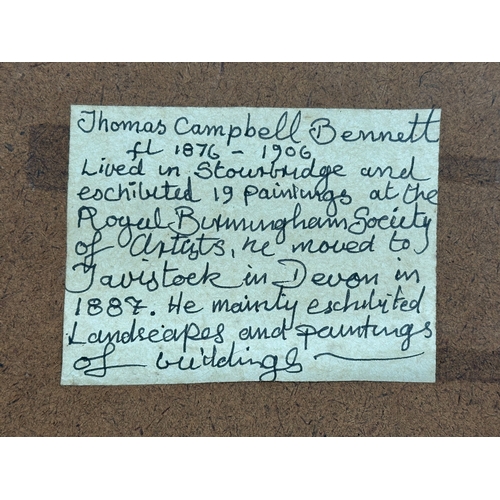 Thomas Campbell Bennett
fl 1876 - 1906
Lived in Stourbridge and
eschibited 19 paintings at the
Royal Birmingham Society
of Artists, he moved to
Tavistock in Devon in
1887. He mainly eschibited
Landscapes and paintings
of buildings